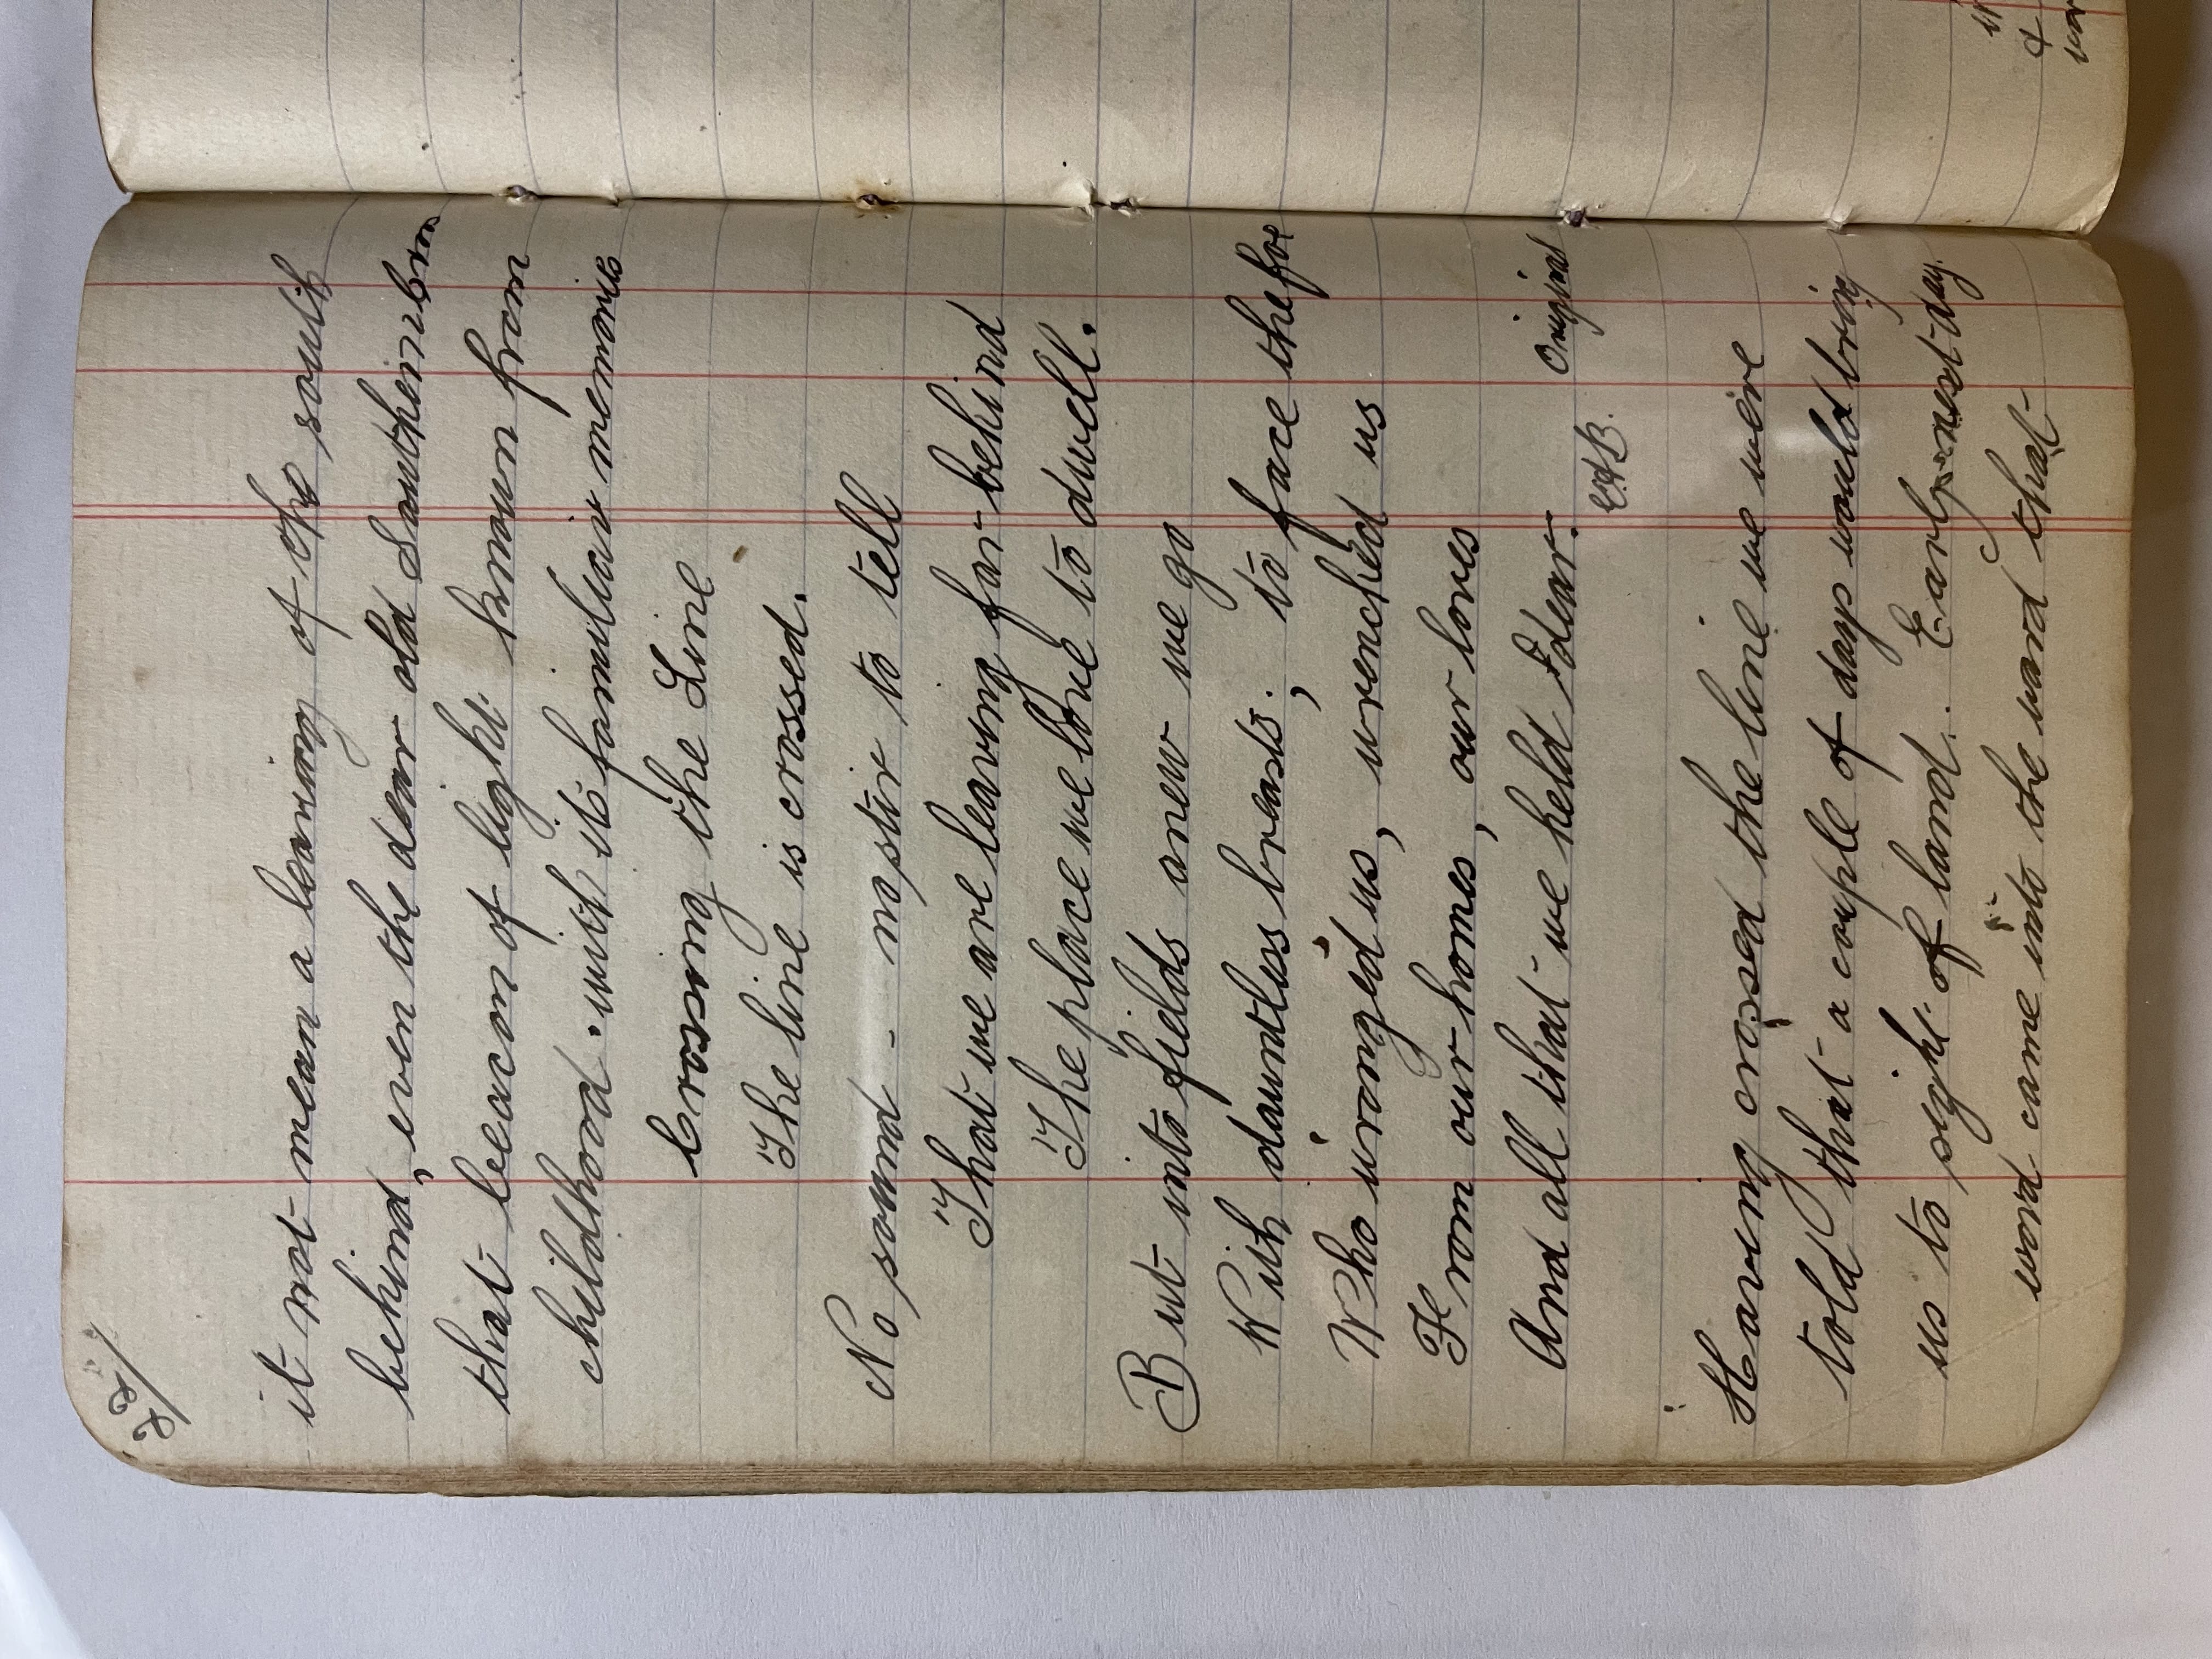 22
it not mean a leaving of the south
behind, even the dear old Southern Cross
that beacon of light known from
childhood. with its familiar memories
Crossing the Line
The line is crossed.
No sound - no stir to tell
That we are leaving far behind
The place we love to dwell.
But into fields anew we go
With dauntless breasts; to face the foe
Who wronged us, wrenched us
From our homes, our loves
And all that we held dear. Original
E.A.B.
Having crossed the line we were
told that a couple of days would bring
us to sight of land.. Early next day.
word came into the ward that